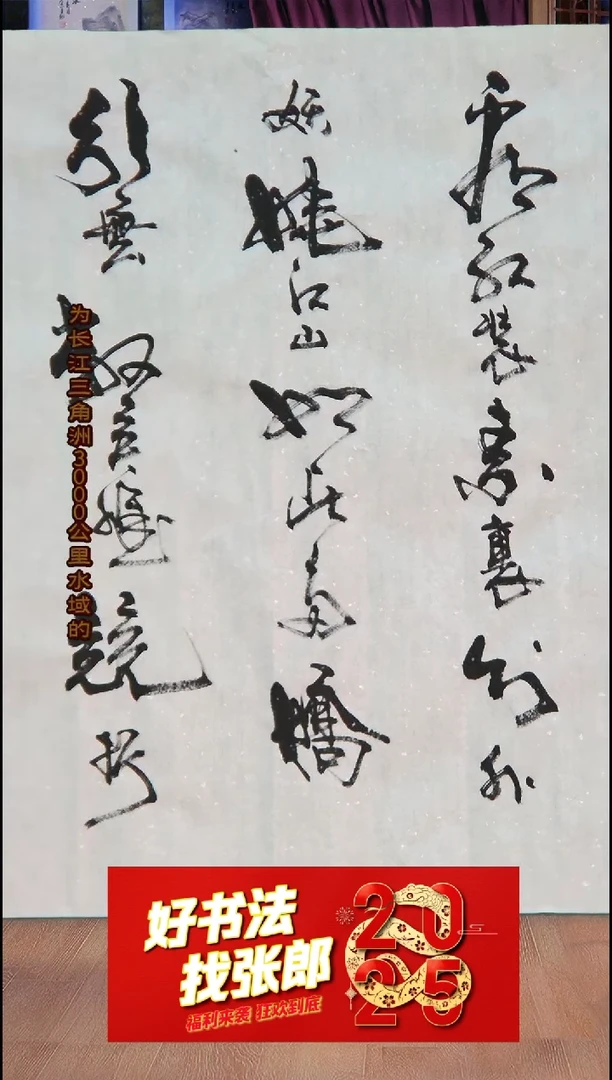 看红装素裹分外
妖娆江山如此多嬌
引無數英雄競折
为长江三角洲3000公里水域的
好书法
找张郎
福利来袭 狂欢到底
2025